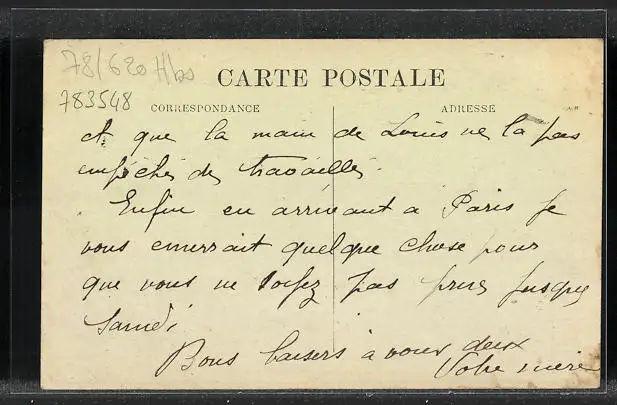 78/620 H/bs
783548
CARTE POSTALE
CORRESPONDANCE
ADRESSE
et que la main de Louis ne la pas
empéché de travailler.
Enfin en arrivant a Paris je
vous enverrait quelque chose pour
que vous ne soyez pas jusque
samedi
Bons baisers à vous deux
Votre mère